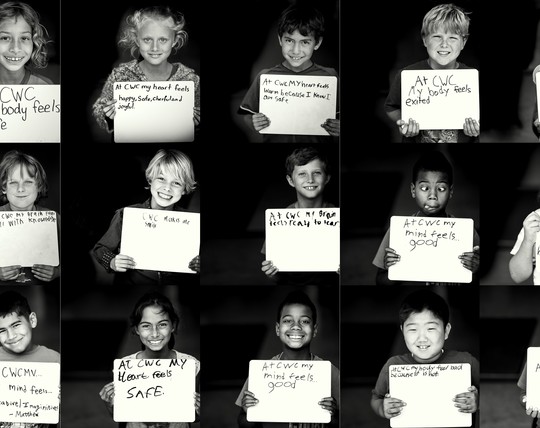 CWC
body feels
fe
At CWC my heart feels
happy, Safe, cheerful and
Joyful.
At CWC MY heart feels
warm because I know I
am safe
At CWC
My body feels
exited
CWC my brain feels
WITH KNOWLEDGE
CWC makes me
At CWC my Brain
feels ready to lear
At CWC my
mind feels
good
CWC MY...
mind feels...
- Matthew
At CWC MY
Heart feels
SAFE.
At CWC my
mind feels
good
At CWC my body feel